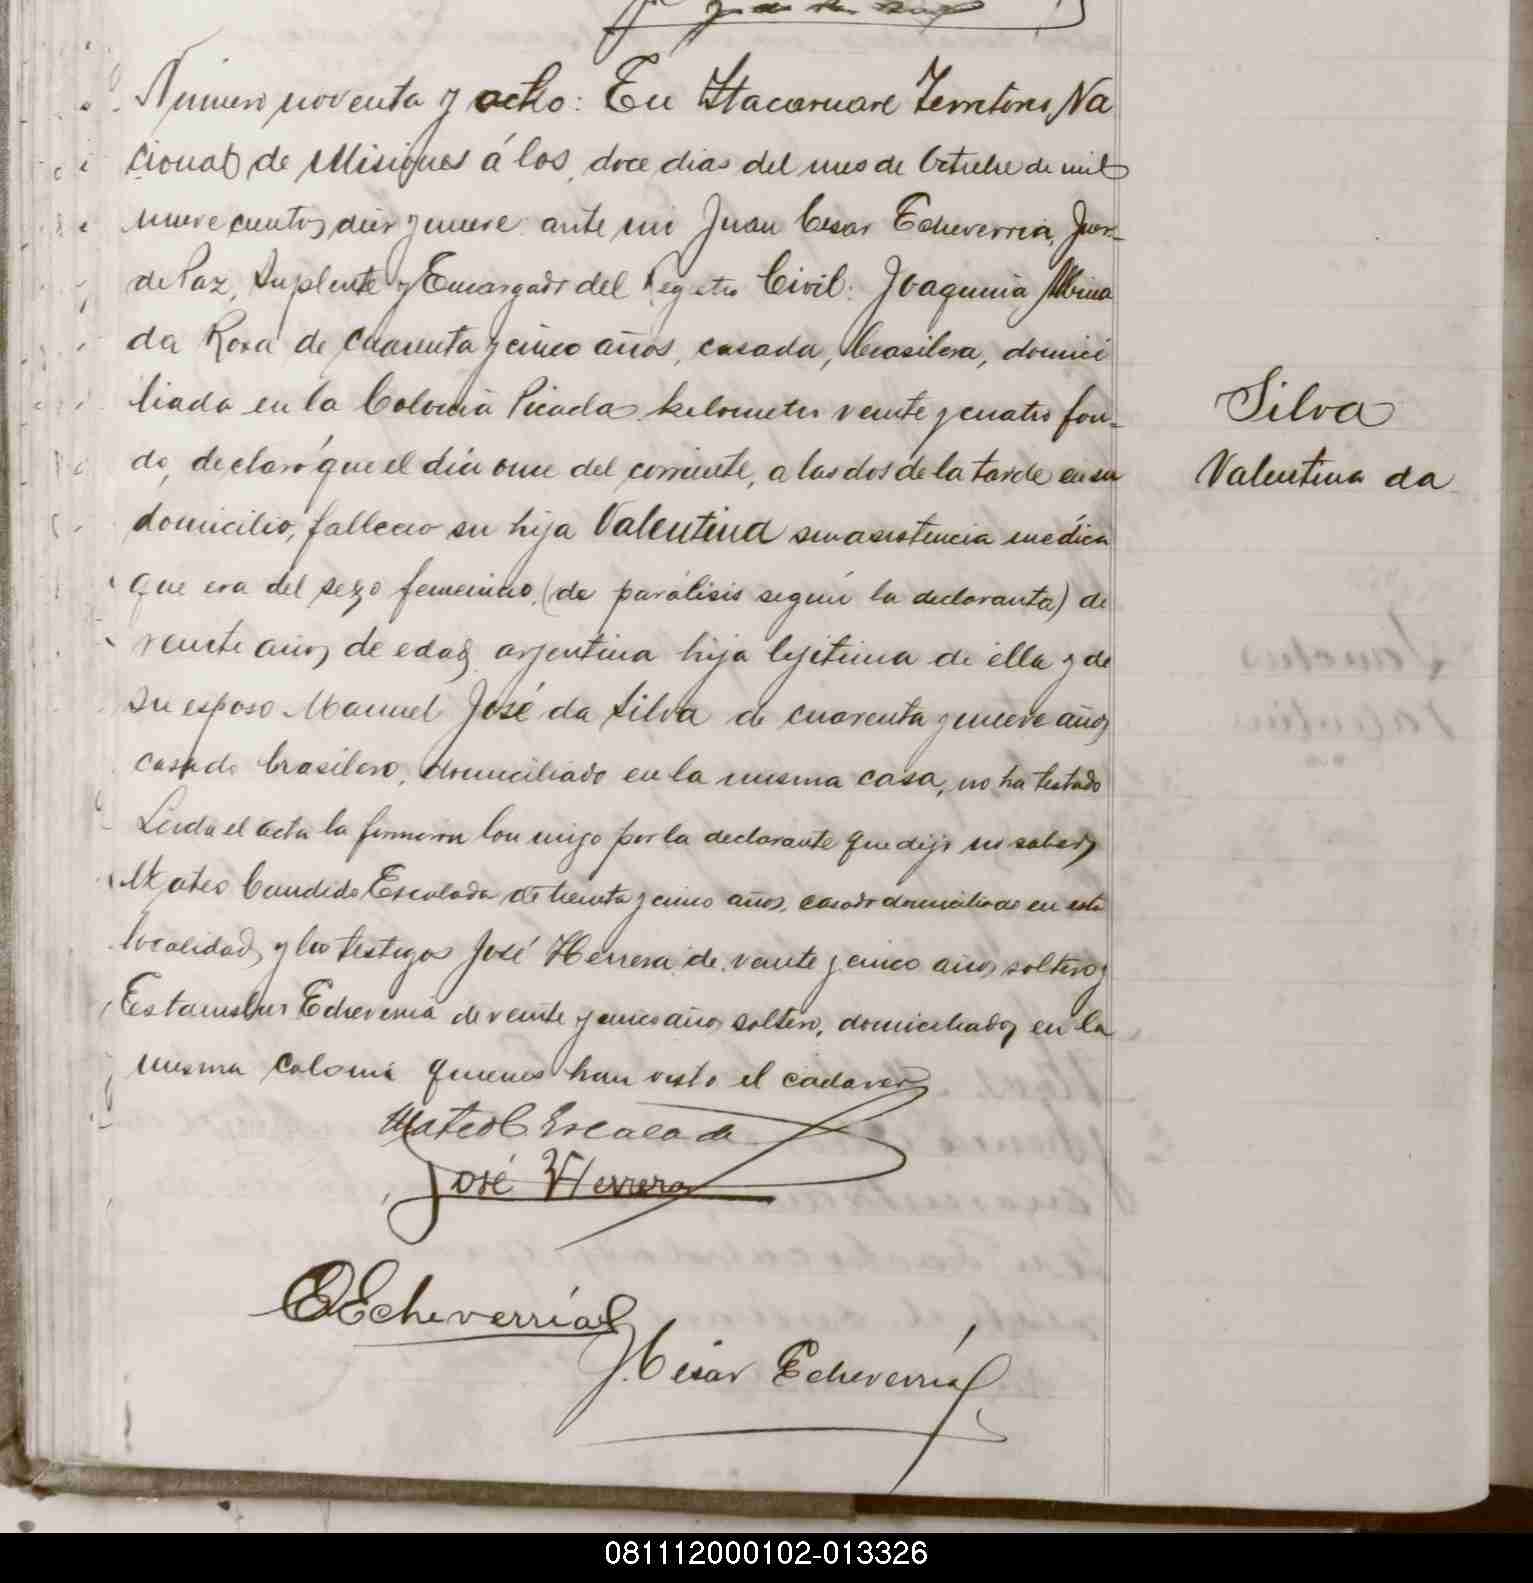 Número noventa y ocho: En Itacaruaré Territorio Na
cional de Misiones á los doce dias del mes de Octubre de mil
nuevecientos diez y nueve: ante mi Juan Cesar Echeverria, Juez
de Paz, Suplente y Encargado del Registro Civil: Joaquina
da Rosa de cuarenta y cinco años, casada, brasilera, domici
liada en la Colonia Picada kilometro veinte y cuatro fon-
do, declaró que el dia once del corriente, a las dos de la tarde en su
domicilio, fallecio su hija Valentina sin asistencia médica
que era del sexo femenino, (de parálisis según la declaranta) de
veinte años de edad argentina hija lejitima de ella y de
su esposo Manuel José da Silva de cuarenta y nueve años
casado brasilero, domiciliado en la misma casa, no ha testado
Leida el acta la firmaron Con migo por la declarante que dijo no saber,
Mateo Candido Escalada de treinta y cinco años, casado domiciliado en esta
localidad, y los testigos José Herrera de veinte y cinco años soltero y
Estanislao Echeverria de veinte y cinco años soltero, domiciliados en la
misma colonia quienes han visto el cadaver
Mateo C Escalada
José Herrera
E Echeverría
J. Cesar Echeverría
Silva
Valentina da
081112000102-013326